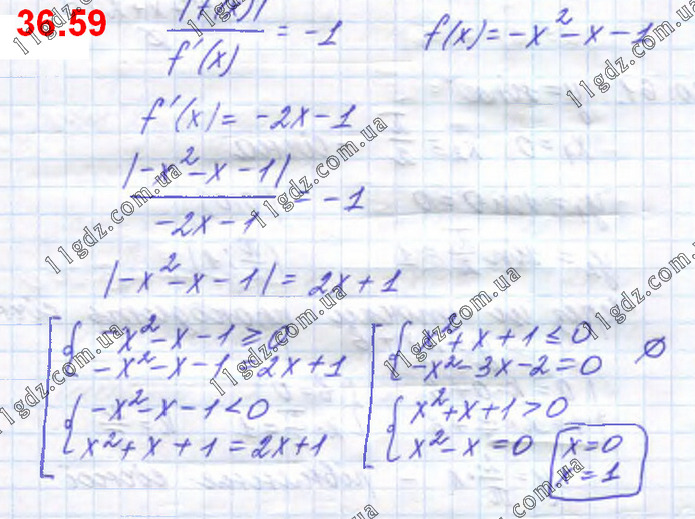 36.59
|f(x)| / f'(x) = -1   f(x) = -x² - x - 1
f'(x) = -2x - 1
|-x² - x - 1| / -2x - 1 = -1
|-x² - x - 1| = 2x + 1
[ { -x² - x - 1 ≥ 0   [ { x² + x + 1 ≤ 0
-x² - x - 1 = 2x + 1   -x² - 3x - 2 = 0   ∅
{ -x² - x - 1 < 0   { x² + x + 1 > 0
x² + x + 1 = 2x + 1   x² - x = 0   x = 0
x = 1
11gdz.com.ua
11gdz.com.ua
11gdz.com.ua
11gdz.com.ua
11gdz.com.ua
11gdz.com.ua
11gdz.com.ua
11gdz.com.ua
11gdz.com.ua
11gdz.com.ua